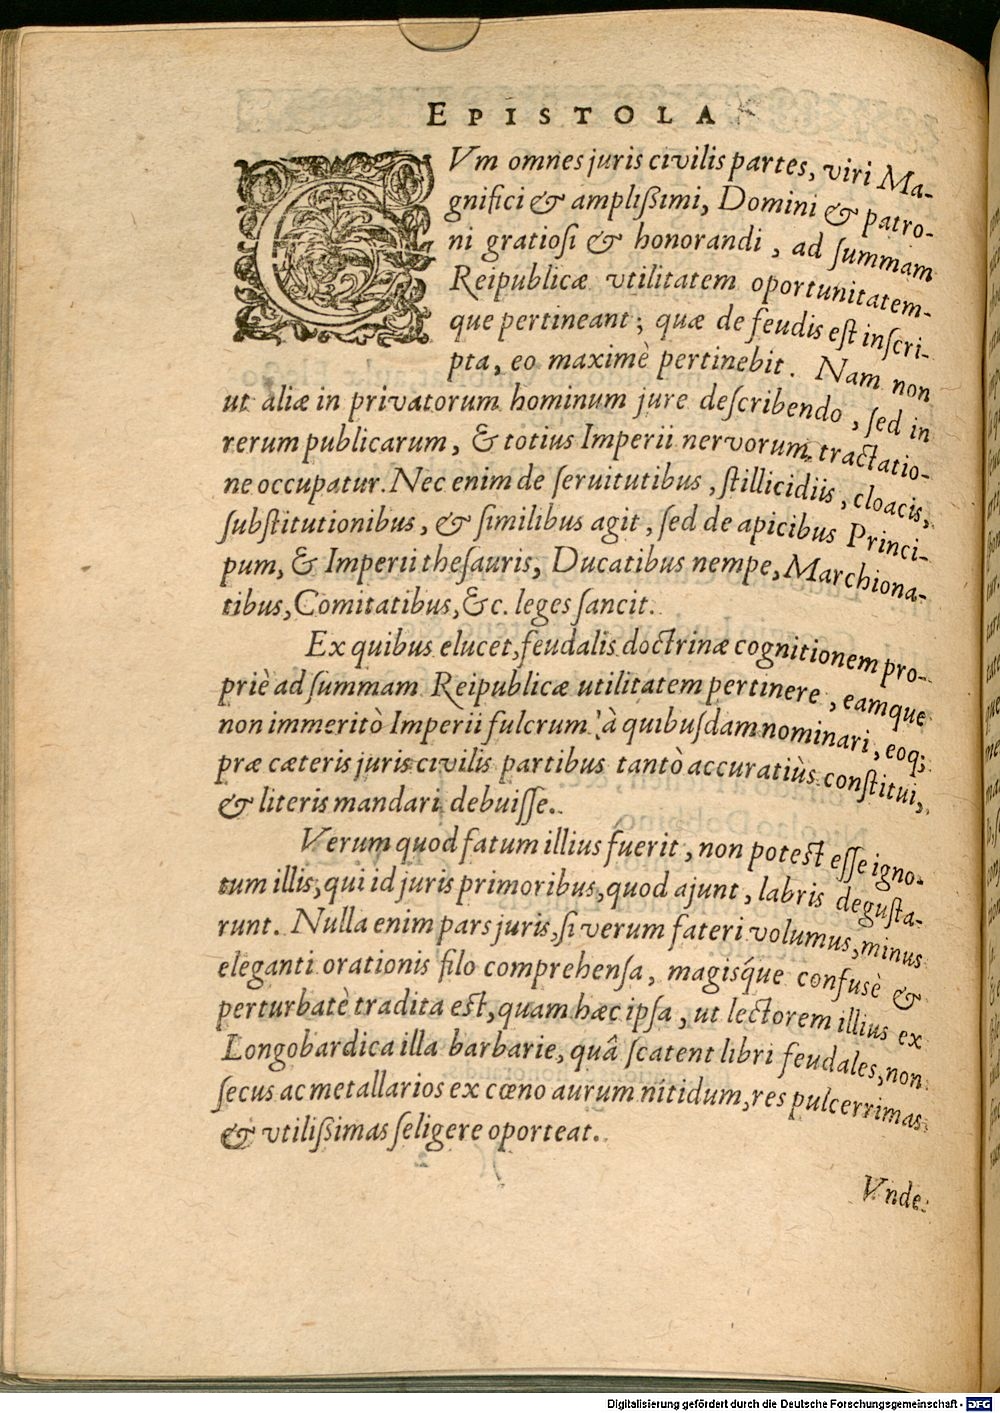 EPISTOLA
CVm omnes juris civilis partes, viri Ma-
gnifici & ampliſſimi, Domini & patro-
ni gratioſi & honorandi, ad ſummam
Reipublicæ vtilitatem oportunitatem-
que pertineant; quæ de feudis eſt inſcri-
pta, eo maximè pertinebit. Nam non
ut aliæ in privatorum hominum jure deſcribendo, ſed in
rerum publicarum, & totius Imperii nervorum tractatio-
ne occupatur. Nec enim de ſeruitutibus, ſtillicidiis, cloacis,
ſubſtitutionibus, & ſimilibus agit, ſed de apicibus Princi-
pum, & Imperii theſauris, Ducatibus nempe, Marchiona-
tibus, Comitatibus, &c. leges ſancit.
Ex quibus elucet, feudalis doctrinæ cognitionem pro-
priè ad ſummam Reipublicæ utilitatem pertinere, eamque
non immeritò Imperii fulcrum à quibuſdam nominari, eoq;
præ cæteris juris civilis partibus tantò accuratiùs conſtitui,
& literis mandari debuiſſe.
Verum quod fatum illius fuerit, non poteſt eſſe igno-
tum illis, qui id juris primoribus, quod ajunt, labris deguſta-
runt. Nulla enim pars juris, ſi verum fateri volumus, minus
eleganti orationis filo comprehenſa, magisq́ue confusè &
perturbatè tradita eſt, quam hæc ipſa, ut lectorem illius ex
Longobardica illa barbarie, quâ ſcatent libri feudales, non
ſecus ac metallarios ex cœno aurum nitidum, res pulcerrimas
& vtiliſſimas ſeligere oporteat.
Vnde
Digitalisierung gefördert durch die Deutsche Forschungsgemeinschaft - DFG